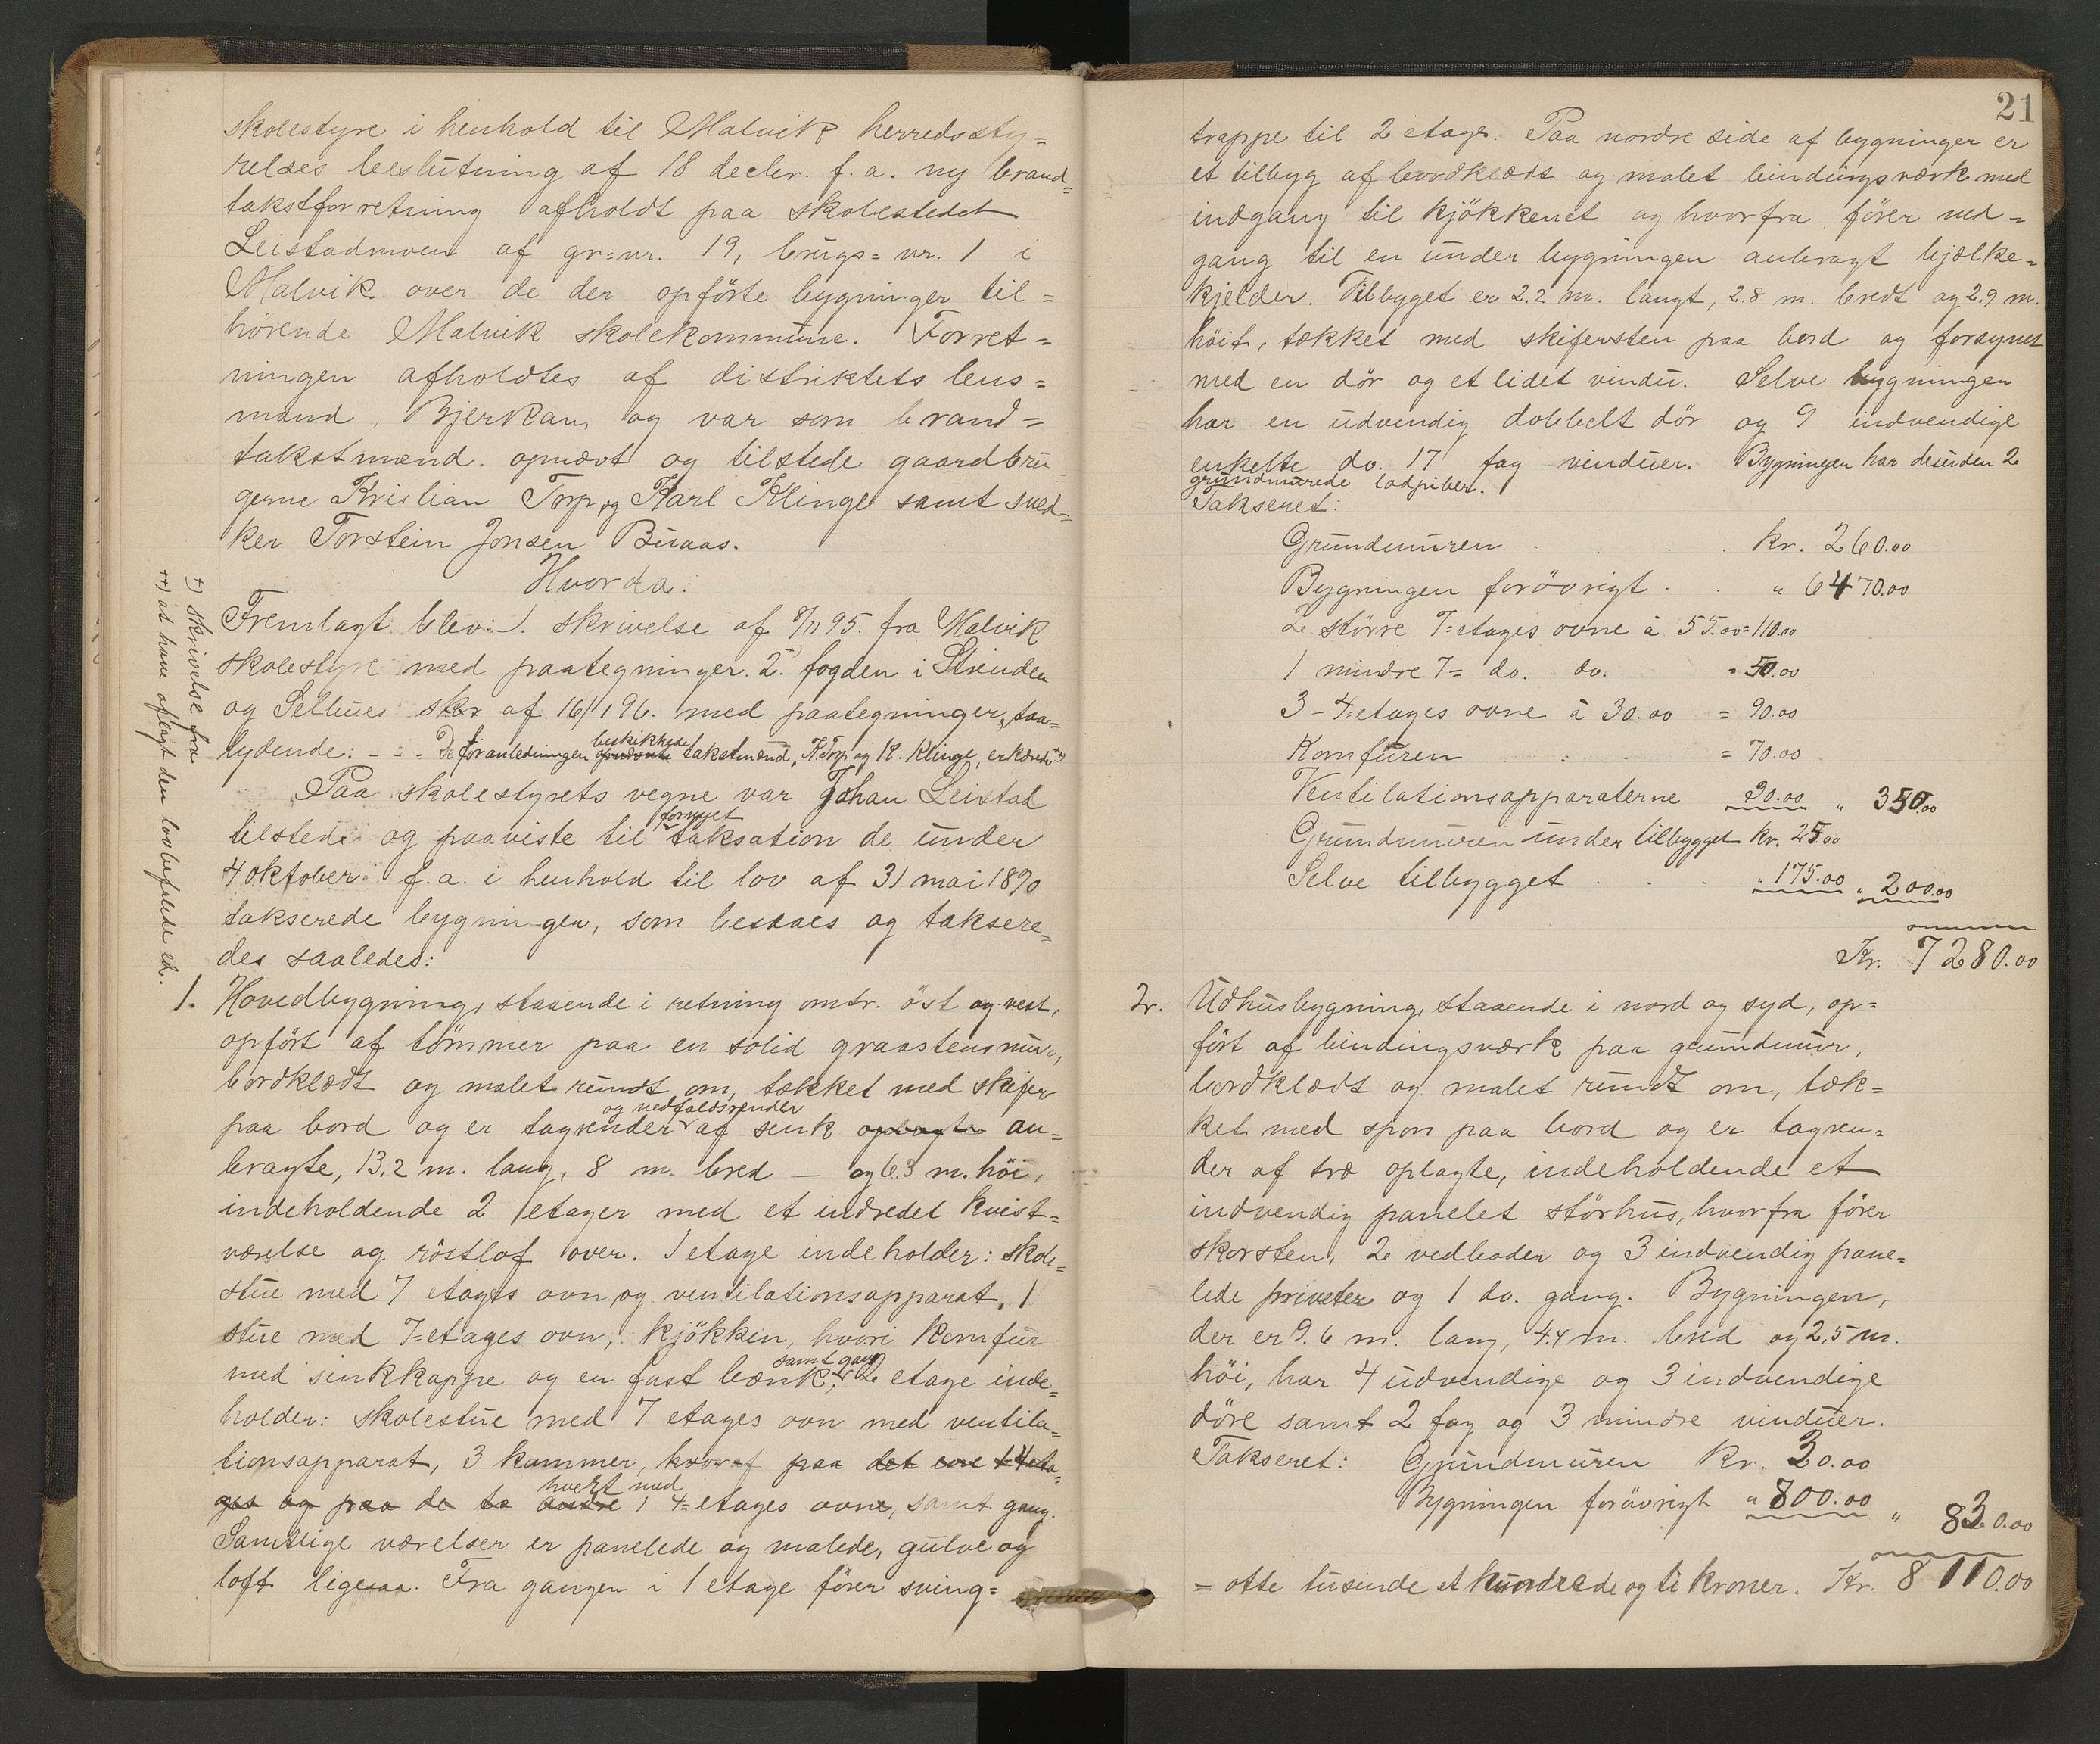 skolestyre i henhold til Malvik herredssty=
relses beslutning af 18 decbr. f.a. ny brand=
takstforretning afholdt paa skolestedet
Leistadmoen af gr=nr. 19, brugs=nr. 1 i
Malvik over de der opförte bygninger til=
hörende Malvik skolekommune. Forret=
ningen afholdtes af distriktets lens=
mand, Bjerkan, og var som brand=
takstmænd opnævt og tilstede gaardbru=
gerne Kristian Torp og Karl Klinge samt sned=
ker Torstein Jonsen Buaas.
Hvorda:
Fremlagt blev: 1. skrivelse af 8/11 95. fra Malvik
skolestyre med paategninger. 2. +) fogden i Strinden
og Selbues skr af 16/1 96. med paategninger, saa=
lydende: - - - De foranledningen beskikkede opnævnte takstmænd, K. Torp og K. Klinge, erklærede ++)
Paa skolestyrets vegne var Johan Leistad
tilstede og paaviste til fornyet taksation de under
4 oktober f.a. i henhold til lov af 31 mai 1890
takserede bygninger, som besaaes og taksere=
des saaledes:
+) skrivelse fra
++) at have aflagt den lovbefalede ed.
1. Hovedbygning, staaende i retning omtr. öst og vest,
opfört af tömmer paa en solid graastensmur,
bordklædt og malet rundt om, tækket med skifer
paa bord og er tagrender og nedfaldsrender af sink oplagte an=
bragte, 13,2 m. lang, 8 m. bred — og 6.3 m. höi,
indeholdende 2 etager med et indredet kvist=
værelse og röstlof over. 1 etage indeholder: skole=
stue med 7 etages ovn og ventilationsapparat, 1
stue med 7=etages ovn, kjökken, hvori komfur
med sinkkappe og en fast bænk, samt gang 2 etage inde=
holder: skolestue med 7 etages ovn med ventila=
tionsapparat, 3 kammer, hvoraf paa det ene 1 4 eta=
ges og paa de to andre hvert med 1 4=etages ovne, samt gang.
Samtlige værelser er panelede og malede, gulve og
loft ligesaa. Fra gangen i 1 etage förer sving=
21
trappe til 2 etage. Paa nordre side af bygningen er
et tilbyg af bordklædt og malet bindingsværk med
indgang til kjökkenet og hvorfra förer ned=
gang til en under bygningen anbragt bjælke=
kjelder. Tilbygget er 2.2 m. langt, 2.8 m. bredt og 2.9 m.
höit, tækket med skifersten paa bord og forsynet
med en dör og et lidet vindu. Selve bygningen
har en udvendig dobbelt dör og 9 indvendige
enkelte do. 17 fag vinduer. Bygningen har desuden 2
grundmurede lodpiber.
Takseret:
Grundmuren . . . . kr. 260.00
Bygningen forövrigt . . " 6470.00
2 större 7=etages ovne à 55.00 = 110.00
1 mindre 7= do. do. = 50.00
3 - 4=etages ovne à 30.00 = 90.00
Komfuren . . = 70.00
Ventilationsapparaterne 30.00 " 350.00
Grundmuren under tilbygget kr. 25.00
Selve tilbygget . . . " 175.00 " 200.00
Kr. 7280.00
2. Udhusbygning, staaende i nord og syd, op=
fört af bindingsværk paa grundmur,
bordklædt og malet rundt om, tæk=
ket med spon paa bord og er tagren=
der af træ oplagte, indeholdende et
indvendig panelet störhus, hvorfra förer
skorsten, 2 vedboder og 3 indvendig pane=
lede priveter og 1 do. gang. Bygningen,
der er 9.6 m. lang, 4.4 m. bred og 2,5 m.
höi, har 4 udvendige og 3 indvendige
döre samt 2 fag og 3 mindre vinduer.
Takseret: Grundmuren Kr. 30.00
Bygningen forövrigt " 800.00 " 830.00
= otte tusinde et hundrede og ti kroner. Kr. 8110.00